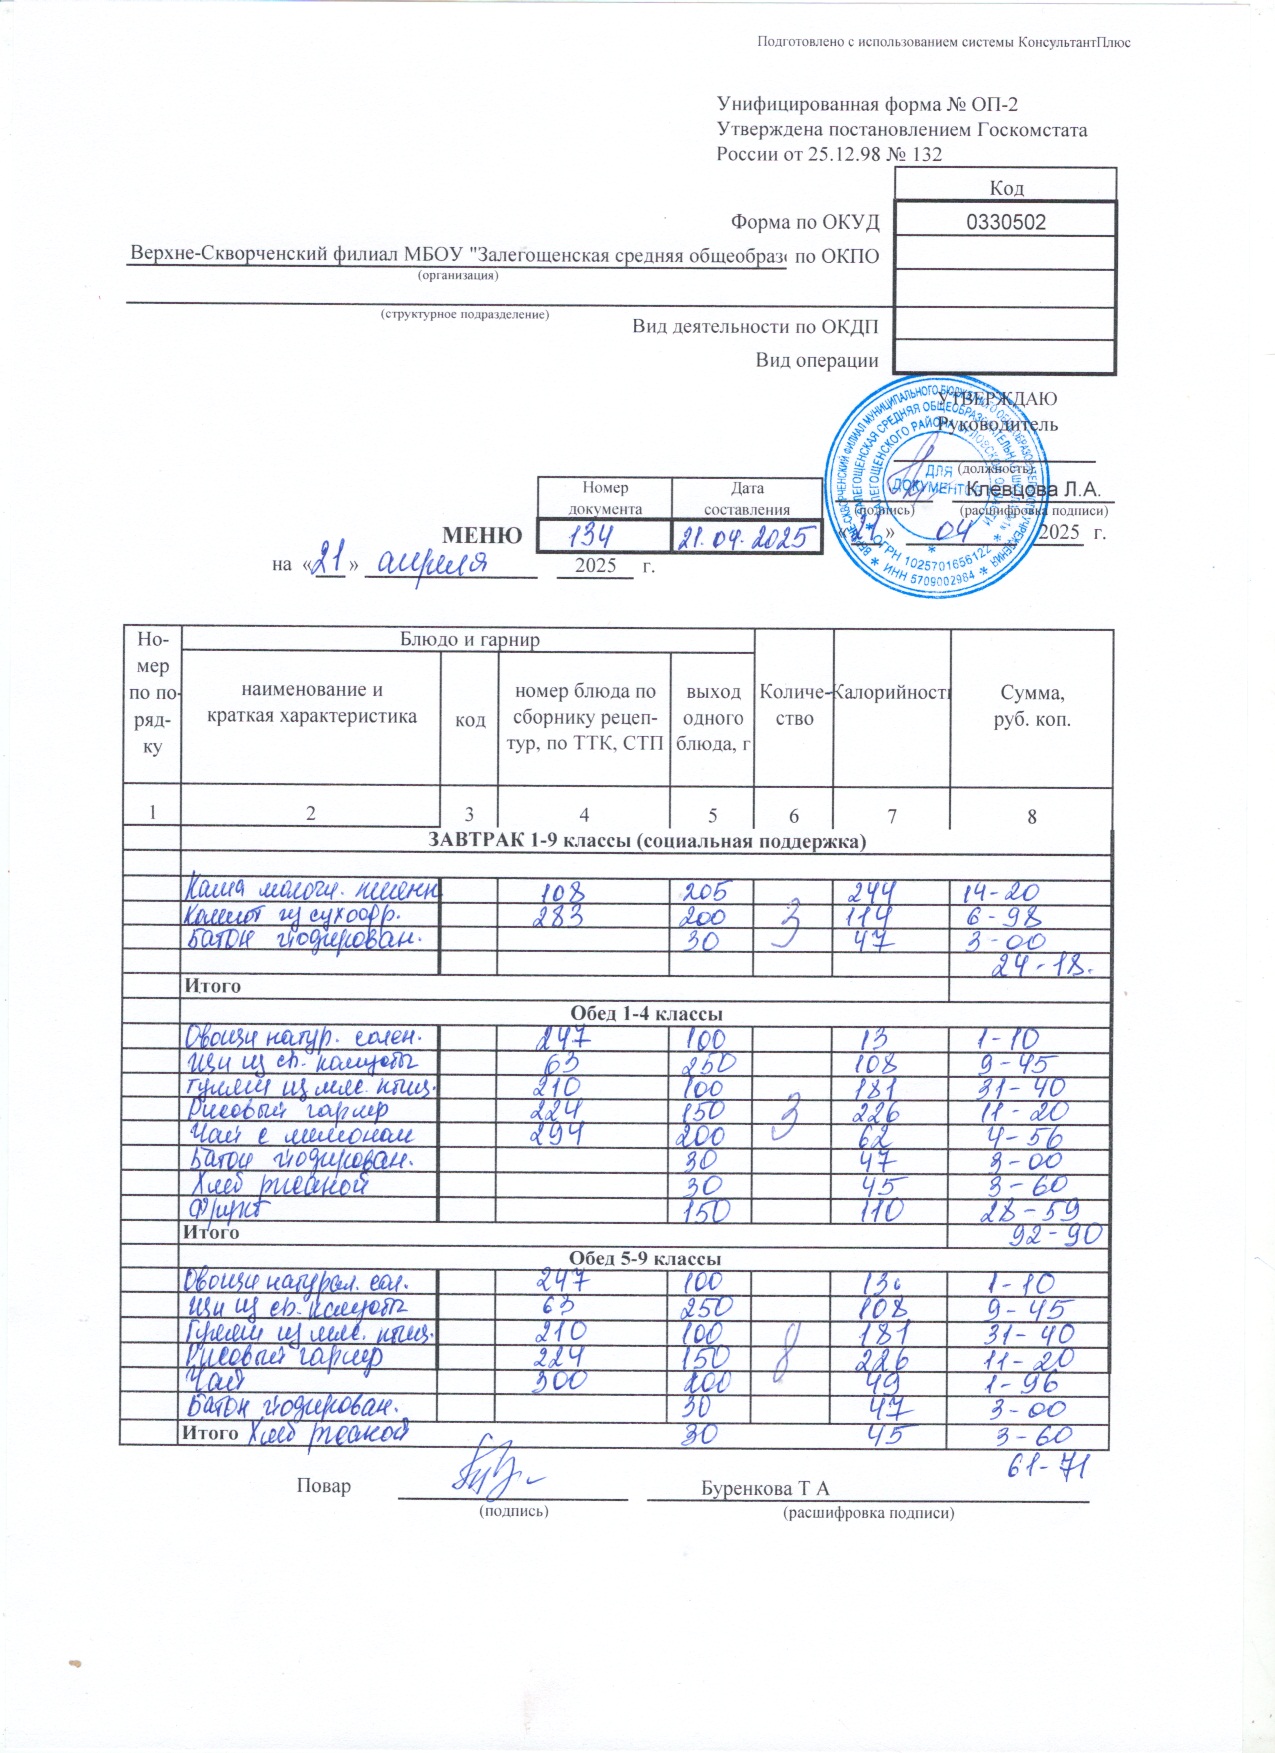 Подготовлено с использованием системы КонсультантПлюс
Унифицированная форма № ОП-2
Утверждена постановлением Госкомстата
России от 25.12.98 № 132
Код
Форма по ОКУД 0330502
Верхне-Скворченский филиал МБОУ "Залегощенская средняя общеобразо по ОКПО
(организация)
(структурное подразделение)
Вид деятельности по ОКДП
Вид операции
УТВЕРЖДАЮ
Руководитель
(должность)
Клевцова Л.А.
(подпись) (расшифровка подписи)
«21» 04 2025 г.
ДЛЯ
ДОКУМЕНТОВ
ОГРН 1025701656122
ИНН 5709002984
Номер документа Дата составления
МЕНЮ 134 21.04.2025
на «21» апреля 2025 г.
Но-мер по по-ряд-ку Блюдо и гарнир Количе-ство Калорийность Сумма, руб. коп.
наименование и краткая характеристика код номер блюда по сборнику рецеп-тур, по ТТК, СТП выход одного блюда, г
1 2 3 4 5 6 7 8
ЗАВТРАК 1-9 классы (социальная поддержка)
Каша молочн. пшенн 108 205 244 14-20
Компот из сухофр. 283 200 3 114 6-98
Батон йодирован. 30 47 3-00
24-18.
Итого
Обед 1-4 классы
Овощи натур. солен. 247 100 13 1-10
Щи из св. капусты 63 250 108 9-45
Гуляш из мяс. птиц. 210 100 181 31-40
Рисовый гарнир 224 150 3 226 11-20
Чай с лимоном 294 200 62 4-56
Батон йодирован. 30 47 3-00
Хлеб ржаной 30 45 3-60
Фрукт 150 110 28-59
Итого 92-90
Обед 5-9 классы
Овощи натурал. сол. 247 100 13 1-10
Щи из св. капусты 63 250 108 9-45
Гуляш из мяс. птиц. 210 100 8 181 31-40
Рисовый гарнир 224 150 226 11-20
Чай 300 200 49 1-96
Батон йодирован. 30 47 3-00
Итого Хлеб ржаной 30 45 3-60
61-71
Повар Буренкова Т А
(подпись) (расшифровка подписи)